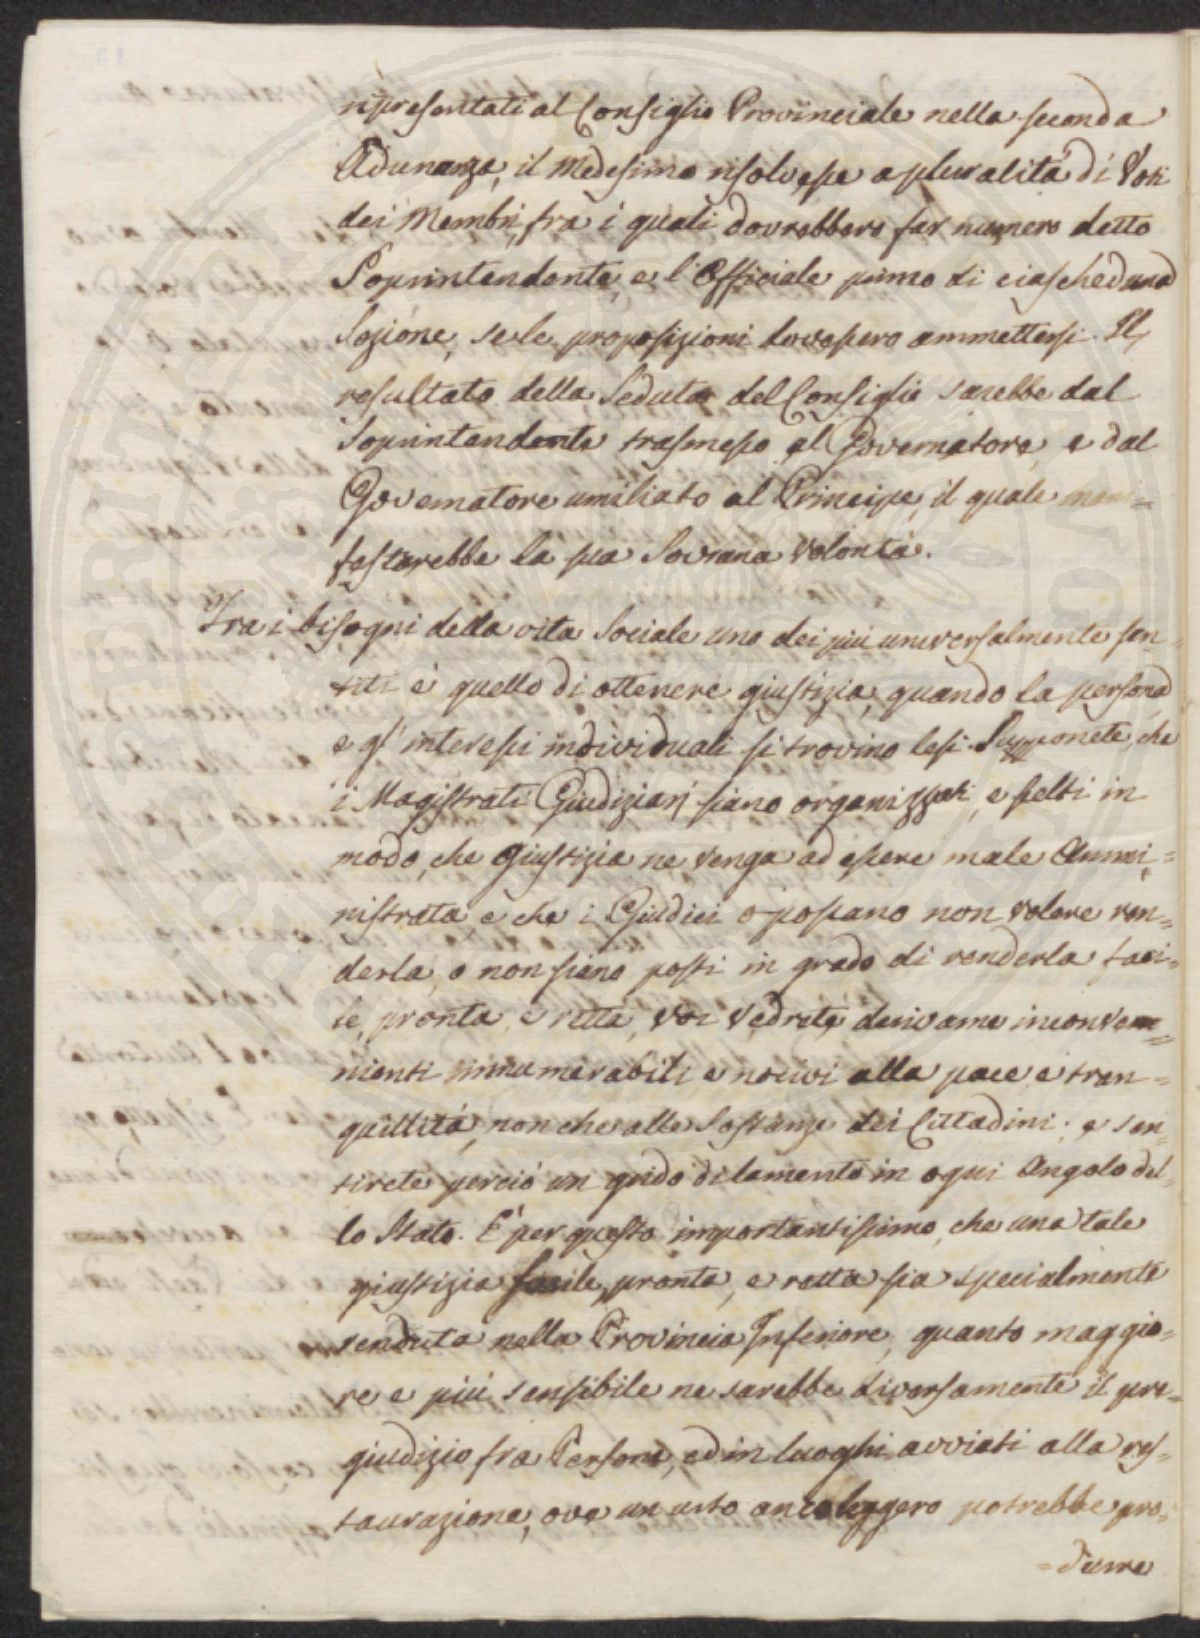 ripresentati al Consiglio Provinciale nella seconda
Adunanza, il Medesimo risolvesse a pluralità di Voti
dei Membri, fra i quali dovrebbero far numero detto
Soprintendente, e l'Officiale primo di ciascheduna
Sezione, se le proposizioni dovessero ammettersi. Il
resultato della Seduta del Consiglio sarebbe dal
Soprintendente trasmesso al Governatore, e dal
Governatore umiliato al Principe, il quale mani=
festarebbe la sua Sovrana Volontà.
Tra i bisogni della vita Sociale uno dei più universalmente sen=
titi è quello di ottenere giustizia, quando la persona
e gl'interessi individuali si trovino lesi. Supponete, che
i Magistrati Giudiziarj siano organizzati, e scelti in
modo, che Giustizia ne venga ad essere male Ammi=
nistrata, e che i Giudici o possano non volere ren=
derla, o non siano posti in grado di renderla faci=
le, pronta, e retta, voi vedrete derivarne inconve=
nienti innumerabili e nocivi alla pace, e tran=
quillità, non che alle Sostanze dei Cittadini; e sen=
tirete perciò un grido di lamento in ogni Angolo del=
lo Stato. È per questo importantissimo, che una tale
giustizia facile, pronta, e retta sia specialmente
renduta nella Provincia Inferiore, quanto maggio=
re e più sensibile ne sarebbe diversamente il pre=
giudizio fra Persone, ed in luoghi avviati alla res=
taurazione, ove un urto anco leggero potrebbe pro=
=durre